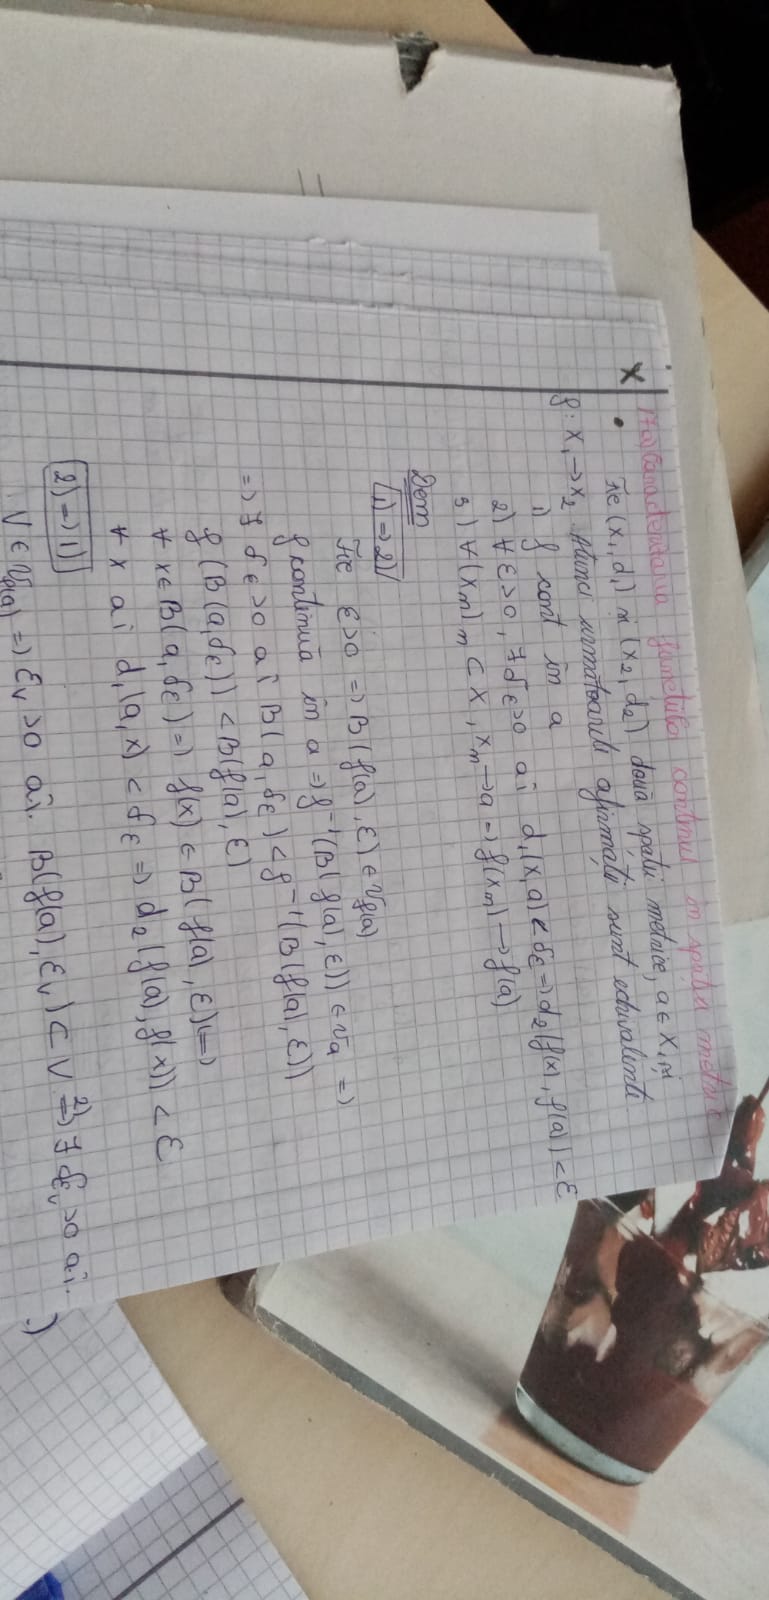 17a) Caracterizarea funcțiilor continue în spații metrice
X • Fie (X₁, d₁) și (X₂, d₂) două spații metrice, a ∈ X₁ și
f: X₁ → X₂ Atunci următoarele afirmații sunt echivalente.
1) f cont în a
2) ∀ ε>0, ∃ δ_ε>0 aî d₁(x,a) < δ_ε => d₂(f(x), f(a)) < ε
3) ∀(xₙ)ₙ ⊂ X, xₙ → a => f(xₙ) → f(a)
Dem
1) => 2)
Fie ε>0 => B(f(a), ε) ∈ V_f(a)
f continuă în a => f⁻¹(B(f(a), ε)) ∈ V_a =>
=> ∃ δ_ε>0 aî B(a, δ_ε) < f⁻¹(B(f(a), ε))
f(B(a, δ_ε)) < B(f(a), ε)
∀ x ∈ B(a, δ_ε) => f(x) ∈ B(f(a), ε) <=>
∀ x aî d₁(a, x) < δ_ε => d₂(f(a), f(x)) < ε
2) => 1)
V ∈ V_f(a) => ε_V >0 aî. B(f(a), ε_V) ⊂ V 2)=> ∃ δ_ε_V >0 aî.